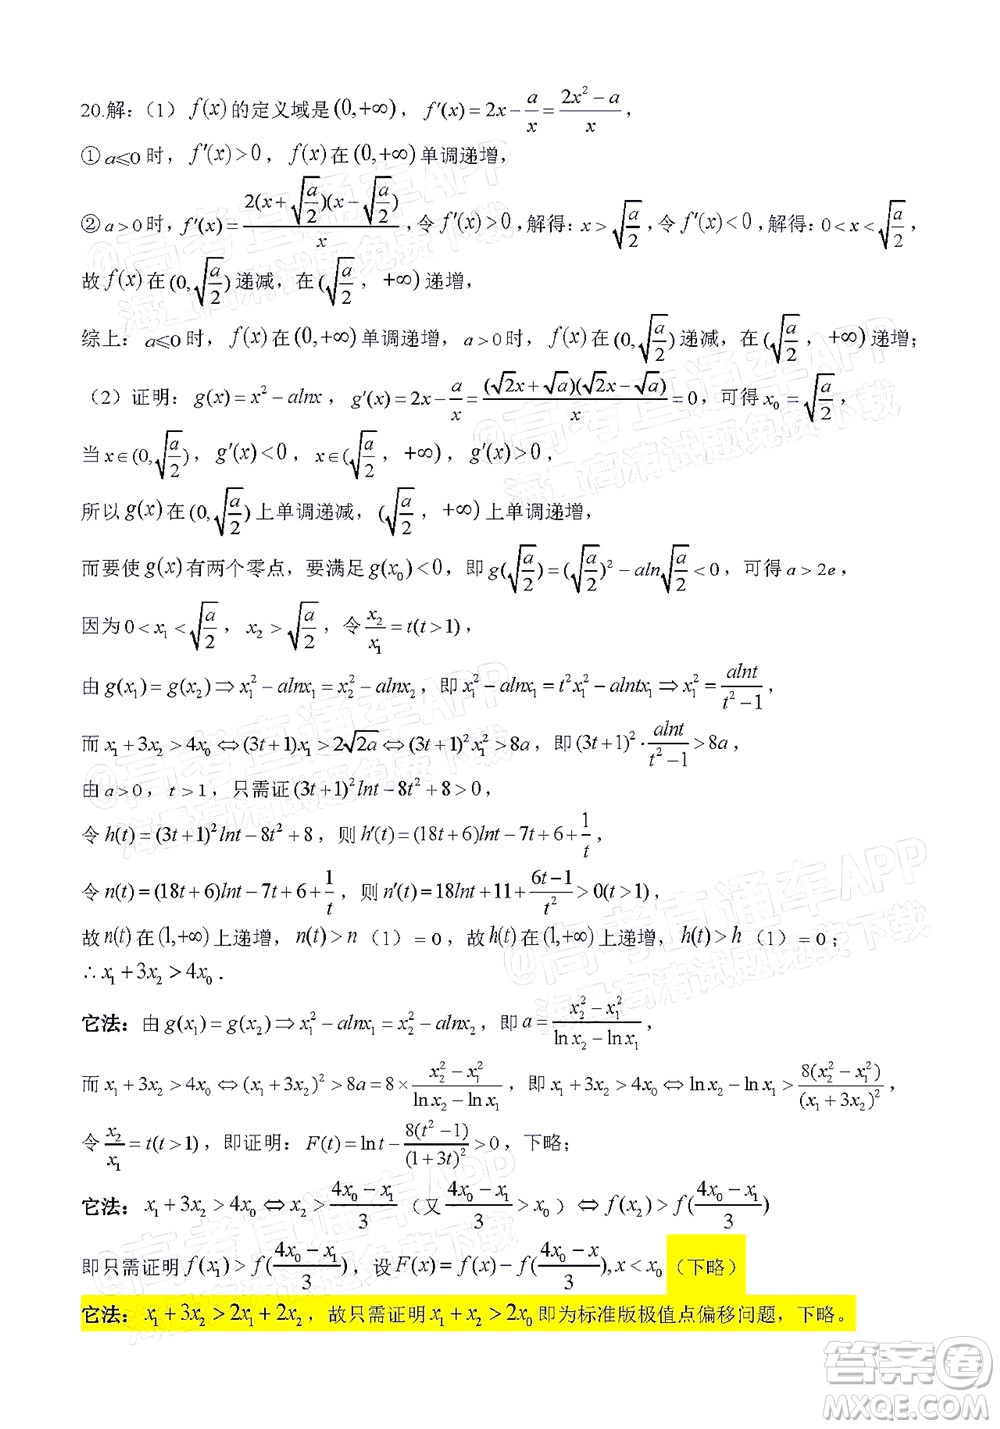 20.解：（1）f(x)的定义域是(0,+∞)，f′(x)=2x−a/x=(2x²−a)/x，
①a⩽0时，f′(x)>0，f(x)在(0,+∞)单调递增，
②a>0时，f′(x)=2(x+√(a/2))(x−√(a/2))/x，令f′(x)>0，解得：x>√(a/2)，令f′(x)<0，解得：0<x<√(a/2)，
故f(x)在(0,√(a/2))递减，在(√(a/2)，+∞)递增，
综上：a⩽0时，f(x)在(0,+∞)单调递增，a>0时，f(x)在(0,√(a/2))递减，在(√(a/2)，+∞)递增；
（2）证明：g(x)=x²−alnx，g′(x)=2x−a/x=(√2x+√a)(√2x−√a)/x=0，可得x₀=√(a/2)，
当x∈(0,√(a/2))，g′(x)<0，x∈(√(a/2)，+∞)，g′(x)>0，
所以g(x)在(0,√(a/2))上单调递减，(√(a/2)，+∞)上单调递增，
而要使g(x)有两个零点，要满足g(x₀)<0，即g(√(a/2))=(√(a/2))²−aln√(a/2)<0，可得a>2e，
因为0<x₁<√(a/2)，x₂>√(a/2)，令x₂/x₁=t(t>1)，
由g(x₁)=g(x₂)⇒x₁²−alnx₁=x₂²−alnx₂，即x₁²−alnx₁=t²x₁²−alntx₁⇒x₁²=alnt/(t²−1)，
而x₁+3x₂>4x₀⇔(3t+1)x₁>2√2a⇔(3t+1)²x₁²>8a，即(3t+1)²·alnt/(t²−1)>8a，
由a>0，t>1，只需证(3t+1)²lnt−8t²+8>0，
令h(t)=(3t+1)²lnt−8t²+8，则h′(t)=(18t+6)lnt−7t+6+1/t，
令n(t)=(18t+6)lnt−7t+6+1/t，则n′(t)=18lnt+11+(6t−1)/t²>0(t>1)，
故n(t)在(1,+∞)上递增，n(t)>n（1）=0，故h(t)在(1,+∞)上递增，h(t)>h（1）=0；
∴x₁+3x₂>4x₀．
它法：由g(x₁)=g(x₂)⇒x₁²−alnx₁=x₂²−alnx₂，即a=(x₂²−x₁²)/(ln x₂−ln x₁)，
而x₁+3x₂>4x₀⇔(x₁+3x₂)²>8a=8×(x₂²−x₁²)/(ln x₂−ln x₁)，即x₁+3x₂>4x₀⇔ln x₂−ln x₁>8(x₂²−x₁²)/(x₁+3x₂)²，
令x₂/x₁=t(t>1)，即证明：F(t)=ln t−8(t²−1)/(1+3t)²>0，下略；
它法：x₁+3x₂>4x₀⇔x₂>(4x₀−x₁)/3（又(4x₀−x₁)/3>x₀）⇔f(x₂)>f((4x₀−x₁)/3)
即只需证明f(x₁)>f((4x₀−x₁)/3)，设F(x)=f(x)−f((4x₀−x)/3),x<x₀（下略）
它法：x₁+3x₂>2x₁+2x₂，故只需证明x₁+x₂>2x₀即为标准版极值点偏移问题，下略。
@高考直通车APP
海量高清试题免费下载
@高考直通车APP
海量高清试题免费下载
@高考直通车APP
海量高清试题免费下载
@高考直通车APP
海量高清试题免费下载
@高考直通车APP
海量高清试题免费下载
答案圈
MXQE.COM